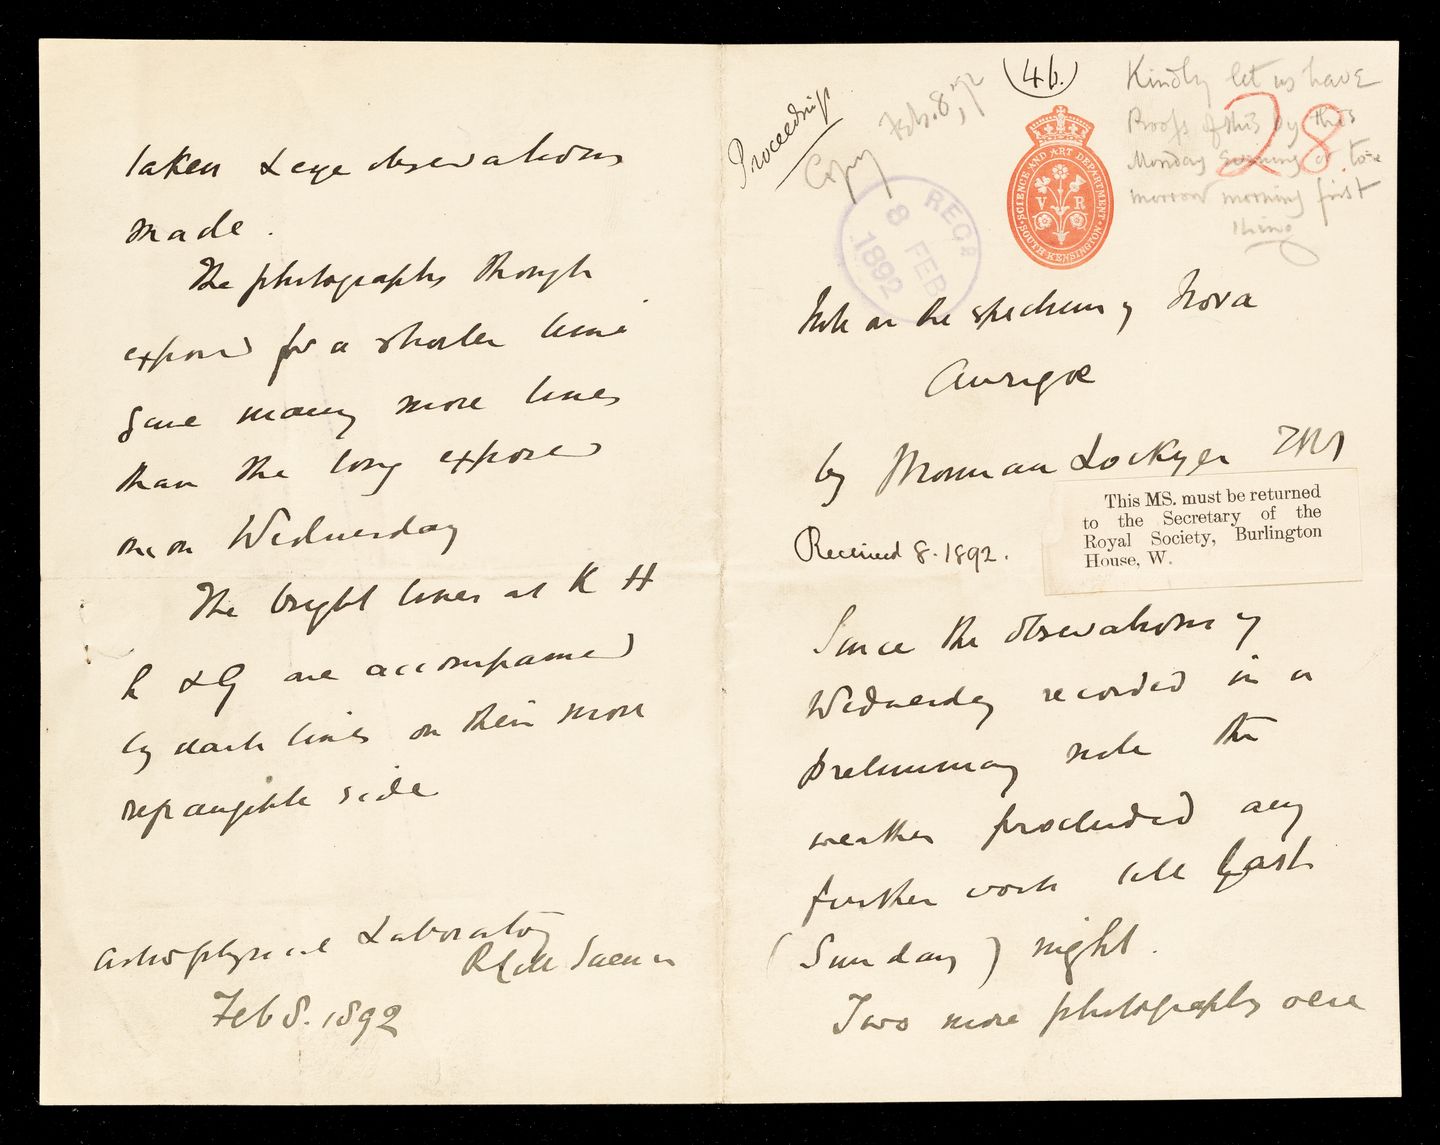 Proceedings
Copy Feb. 8, 92
(46.)
Kindly let us have
Proofs of this by this
Monday Evening or to=
morrow morning first
thing
28.
REC.D
8 FEB
1892
SCIENCE AND ART DEPARTMENT
V R
SOUTH KENSINGTON
Note on the spectrum of Nova
Aurigæ
by J Norman Lockyer FRS
Received 8. 1892.
This MS. must be returned
to the Secretary of the
Royal Society, Burlington
House, W.
Since the observations of
Wednesday recorded in a
preliminary note the
weather precluded any
further work till last
(Sunday) night.
Two more photographs were
taken & eye observations
made.
The photographs though
exposed for a shorter time
gave many more lines
than the long exposed
one on Wednesday
The bright lines at K H
h & G are accompanied
by dark lines on their more
refrangible side
Astrophysical Laboratory
R Coll Science
Feb 8. 1892